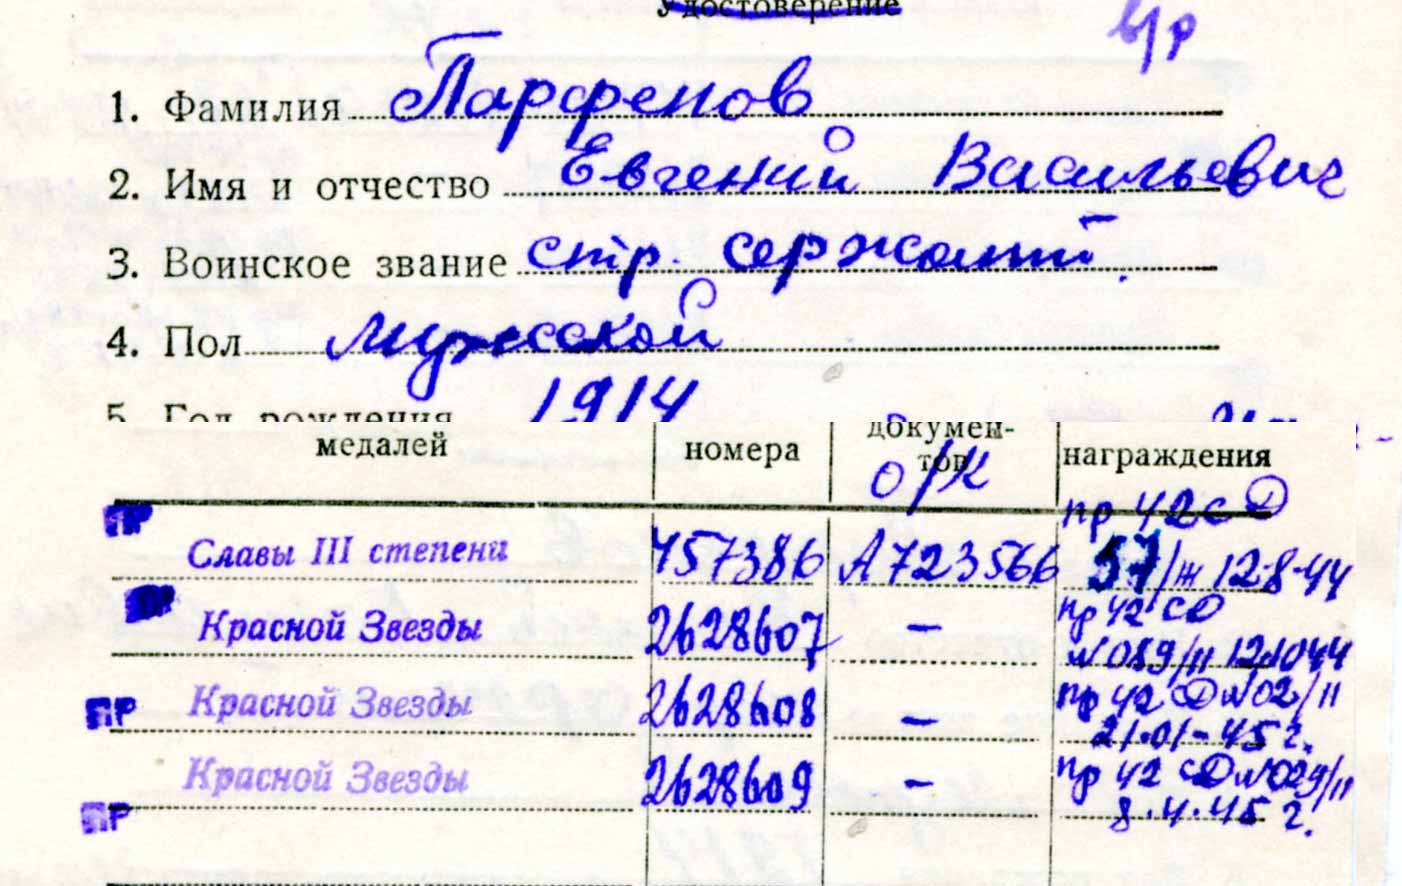 Удостоверение
в/р
1. Фамилия Парфенов
2. Имя и отчество Евгений Васильевич
3. Воинское звание стр. сержант
4. Пол мужской
5. Год рождения 1914
медалей номера докумен-
тов награждения
о/к
пр 42 СД
ПР Славы III степени 457386 А723566 57/ж 12-8-44
пр 42 СД
ПР Красной Звезды 2628607 — №089/н 12.10.44
ПР Красной Звезды 2628608 — пр 42 СД №02/н
21.01-45 г.
ПР Красной Звезды 2628609 — пр 42 СД №029/н
8.4.45 г.